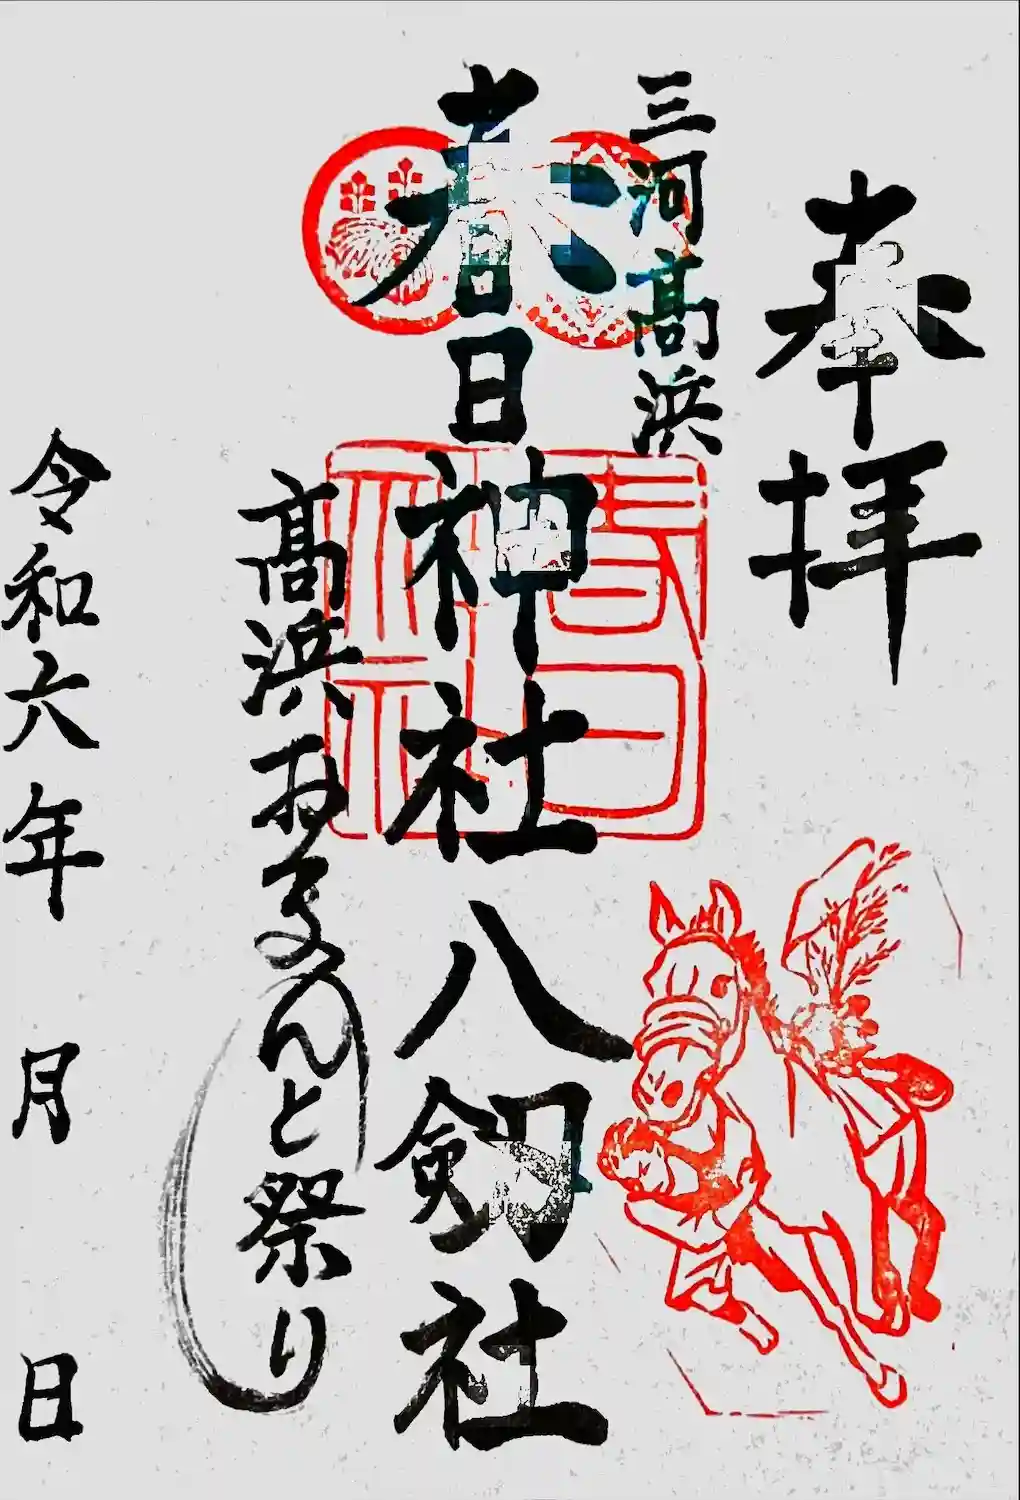 奉拝
三河髙浜
春日神社八剱社
髙浜おまんと祭り
令和六年 月 日
春日神社